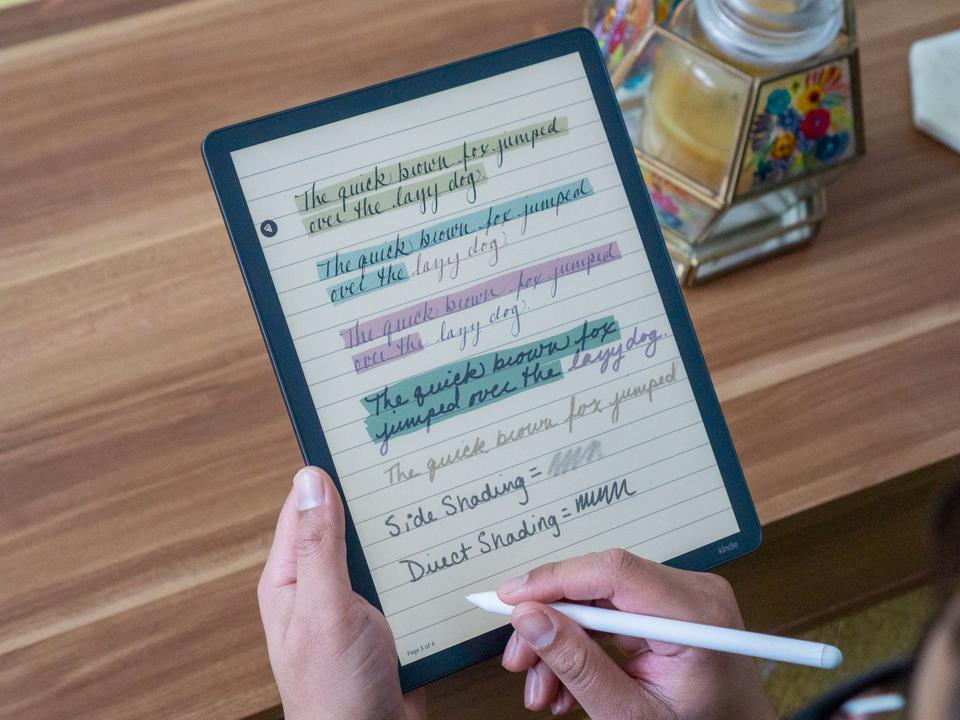 The quick brown fox jumped
over the layy dog.
The quick brown fox jumped
over the layy dog.
The quick brown fox jumped
over the layy dog.
The quick brown fox
jumped over the layy dog.
The quick brown fox jumped
Side Shading =
Direct Shading =
kindle
Page 5 of 6